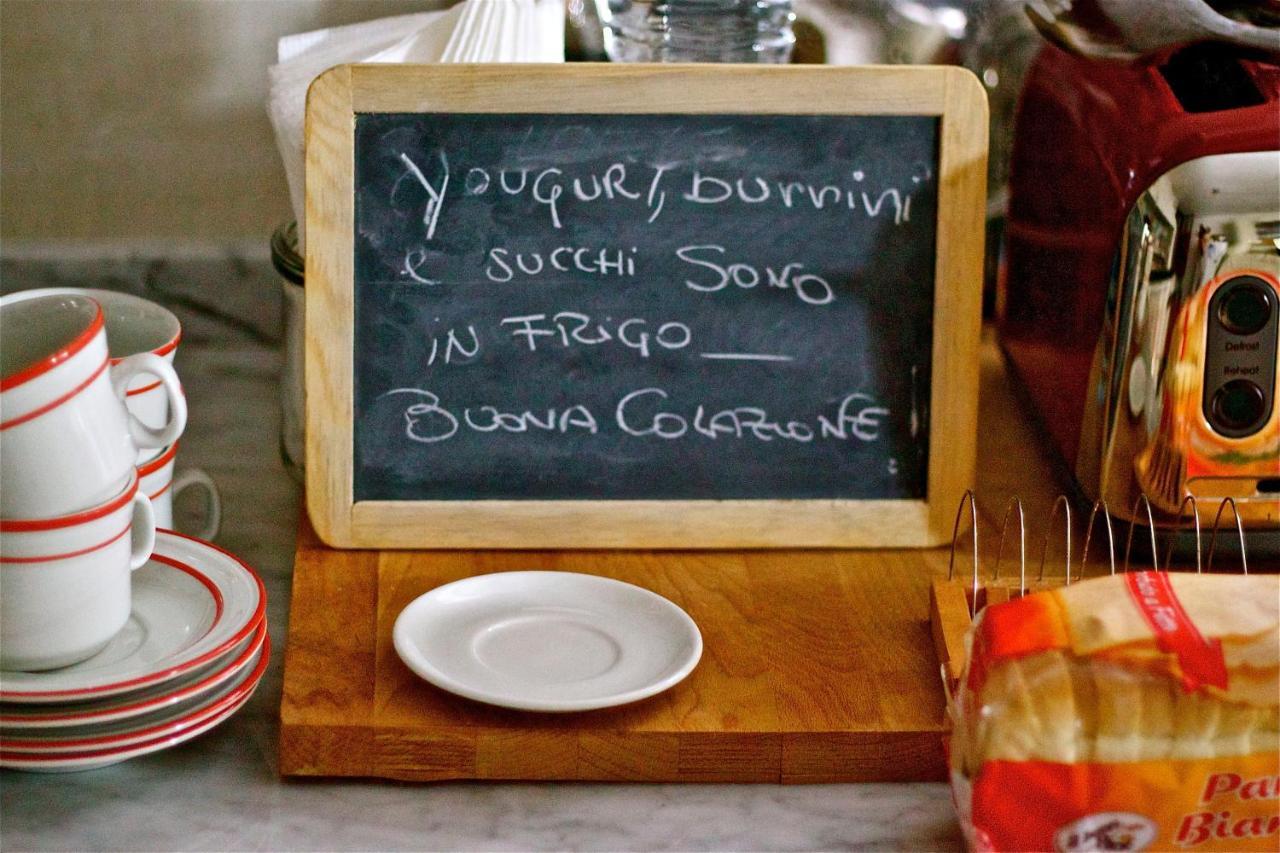 Yougurt, burrini
e succhi sono
in frigo ___
Buona Colazione
Defrost
Reheat